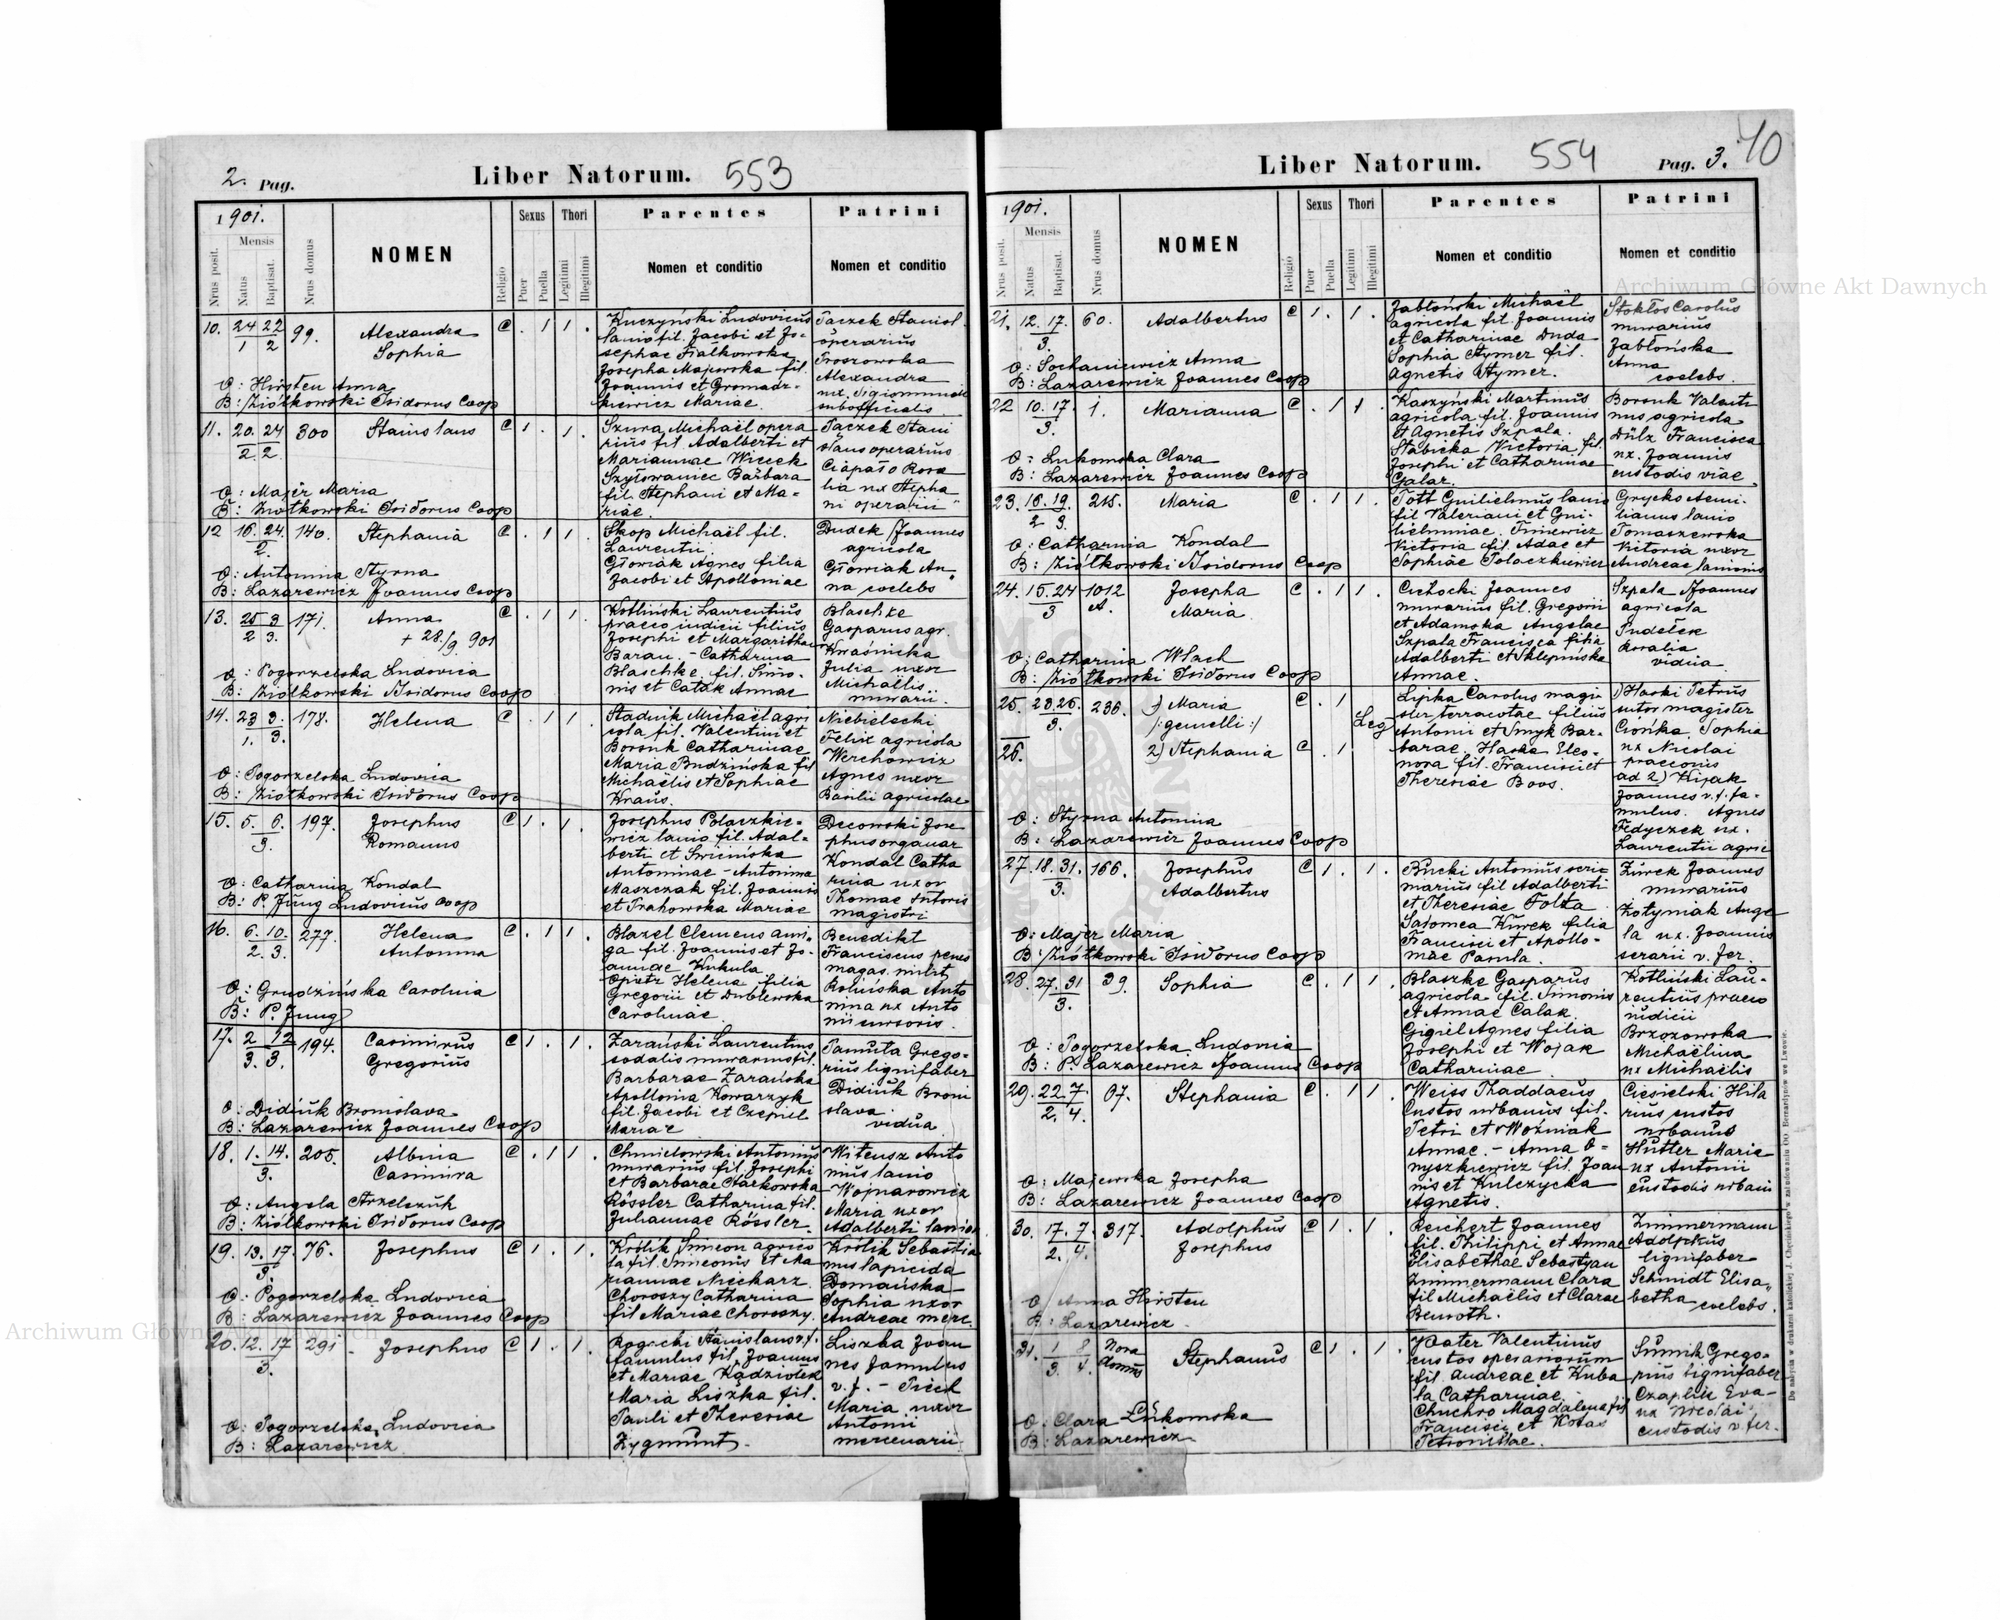 2. Pag.
Liber Natorum.
553
1901.
Nrus posit.
Mensis
Natus
Baptisat.
Nrus domus
NOMEN
Religio
Sexus
Puer
Puella
Thori
Legitimi
Illegitimi
Parentes
Nomen et conditio
Patrini
Nomen et conditio
10. 24 22 99.
1 2
Alexandra
Sophia
O: Hirsten Anna
B: Ziółkowski Isidorus Coop
Kuczyński Ludovicus
lanio fil. Jacobi et Jo-
sephae Fialkowska
Josepha Majewska fil.
Joannis et Gromadz-
kiewicz Mariae.
Paczek Stanisl.
operarius
Alexandra
subofficialis
11. 20. 24 300
2. 2.
Stanislaus
O: Majer Maria
B: Ziołkowski Isidorus Coop
Szura Michaël opera
rius fil Adalberti et
Mariannae Wilcek
Szytowaniec Barbara
fil. Stephani et Ma-
riae.
Paczek Stani
slaus operarius
Ciapało Rosa
lia ux Stepha-
ni operarii
12 16. 24. 140.
2.
Stephania
O: Antonina Styrna
B: Lazarewicz Joannes Coop
Skop Michaël fil.
Laurentii
Głowiak Agnes filia
Jacobi et Apolloniae
Dudek Joannes
agricola
Głowiak An-
na coelebs
13. 25 3 171.
2 3.
Anna
+ 28/9 901
O: Pogorzelska Ludovica
B: Ziółkowski Isidorus Coop
Kotliński Laurentius
praeco iudicii filius
Josephi et Margarithae
Baran. - Catharina
Blaschke, fil. Simo-
nis et Calak Annae
Blaschke
Gasparus agr.
Kwaśnicka
Julia uxor
Michaëlis
murarii
14. 23 3. 178.
1. 3.
Helena
O: Pogorzelska Ludovica
B: Ziółkowski Isidorus Coop
Stadnik Michaël agri
cola fil. Valentini et
Borsuk Catharinae
Maria Budzińska fil
Michaëlis et Sophiae
Kraus.
Niebielecki
Felix agricola
Werchowicz
Agnes uxor
Basilii agricolae
15. 5. 6. 197.
3.
Josephus
Romanus
O: Catharina Kondal
B: P. Jung Ludovicus Coop
Josephus Polaczkie-
wicz lanio fil. Adal-
berti et Swicińska
Antoninae - Antonina
Maszczak fil. Joannis
et Trahowska Mariae
Decowski Jose
phus organar
Kondal Catha
rina uxor
Thomae sutoris
magistri
16. 6. 10. 277.
2. 3.
Helena
Antonina
O: Grudzińska Carolina
B: P. Jung
Blazel Clemens auri-
ga fil. Joannis et Jo-
annae Kukula
Opietz Helena filia
Gregorii et Dublewska
Carolinae.
Benedikt
Franciscus penes
magas. milit
Rolińska Anto
nina ux Anto
nii cursoris.
17. 2 12 194.
3. 3.
Casimirus
Gregorius
O: Didiuk Bronislava
B: Lazarewicz Joannes Coop
Zarański Laurentius
sodalis murarius fil.
Barbarae Zarańska
Apollonia Kowarzyk
fil. Jacobi et Czepiel
Mariae
Pamuła Grego-
rius lignifaber
Didiuk Broni
slava
vidua
18. 1. 14. 205.
3.
Albina
Casimira
O: Angela Strzelczuk
B: Ziółkowski Isidorus Coop
Chmielowski Antonius
murarius fil. Josephi
et Barbarae Starkowska
Rössler Catharina fil.
Juliannae Rössler.
Witeusz Anto
nius lanio
Wojnarowicz
Maria uxor
Adalberti lanion
19. 13. 17. 76.
3.
Josephus
O: Pogorzelska Ludovica
B: Lazarewicz Joannes Coop
Królik Simeon agrico
la fil. Simeonis et Ma
riannae Niecharz.
Choroszy Catharina
fil Mariae Choroszy.
Królik Sebastia
nus lapicida
Domańska
Sophia uxor
Andreae merc.
20. 12. 17 291
3.
Josephus
O: Pogorzelska Ludovica
B: Lazarewicz
Rogocki Stanislaus v.f.
famulus fil. Joannis
et Mariae Kądziołek
Maria Liszka fil.
Pauli et Theresiae
Zygmunt.
Liszka Joan
nes famulus
v. f. - Piech
Maria uxor
Antonii
mercenarii
Liber Natorum.
554
Pag. 3.
40
1901.
Nrus posit.
Mensis
Natus
Baptisat.
Nrus domus
NOMEN
Religio
Sexus
Puer
Puella
Thori
Legitimi
Illegitimi
Parentes
Nomen et conditio
Patrini
Nomen et conditio
21. 12. 17. 60.
3.
Adalbertus
O: Sochaniewicz Anna
B: Lazarewicz Joannes Coop
Jabłoński Michaël
agricola fil. Joannis
et Catharinae Duda
Sophia Stymer fil.
Agnetis Stymer.
Stokłos Carolus
murarius
Jabłońska
Anna
coelebs.
22 10. 17. 1.
3.
Marianna
O: Lukomska Clara
B: Lazarewicz Joannes Coop
Kaszyński Martinus
agricola fil. Joannis
et Agnetis Szpala.
Stabicka Victoria fil
Josephi et Catharinae
Galar.
Borsuk Valenti
nus agricola
Dülz Francisca
ux. Joannis
custodis viae
23. 16. 19. 218.
2 3.
Maria
O: Catharina Kondal
B: Ziółkowski Isidorus Coop
Tott Guilielmus lanio
fil Valeriani et Gui-
lielminae.
Victoria fil. Adae et
Sophiae Polaczkiewicz
Grycko Aemi-
lianus lanio
Tomaszewska
Victoria uxor
Andreae lanionis
24. 15. 24 1012
3
Josepha
Maria
O: Catharina Wlach
B: Ziółkowski Isidorus Coop
Cichocki Joannes
murarius fil. Gregorii
et Adamska Angelae
Szpala Francisca filia
Adalberti et Sklepińska
Annae.
Szpala Joannes
agricola
Pudełek
Rosalia
vidua
25. 23. 26. 236.
3.
1) Maria
/: gemelli :/
Leg
26.
2) Stephania
O: Styrna Antonina
B: Lazarewicz Joannes Coop
Lipka Carolus magi
ster terracotae filius
Antonii et Smyk Bar-
barae. Haska Eleo-
nora fil. Francisci et
Theresiae Boos.
1) Haski Petrus
sutor magister
Ciońka Sophia
ux Nicolai
praeconis
ad 2)
Joannes v. f. fa-
mulus. Agnes
Fedyczek ux.
Laurentii agric
27. 18. 31. 166.
3.
Josephus
Adalbertus
O: Majer Maria
B: Ziółkowski Isidorus Coop
Bucki Antonius
marius fil Adalberti
et Theresiae Folta
Salomea Kurek filia
Francisci et Apollo-
niae Pasula.
Żurek Joannes
murarius
Żołyniak Ange
la ux. Joannis
serarii v. fer.
28. 27. 31 39.
3.
Sophia
O: Pogorzelska Ludovica
B: P. Lazarewicz Joannes Coop
Blaszke Gasparus
agricola fil. Simonis
et Annae Calak.
Gigiel Agnes filia
Josephi et Wojak
Catharinae.
Kotliński Lau-
rentius praeco
iudicii
Brzozowska
Michaëlina
ux Michaëlis
29. 22 7 07.
2. 4.
Stephania
O: Majewska Josepha
B: Lazarewicz Joannes Coop
Weiss Thaddaeus
Custos urbanus fil.
Petri et Woźniak
Annae. - Anna O-
nyszkiewicz fil. Joan
nis et Kulczycka
Agnetis.
Ciesielski Hila
rius custos
urbanus
Hutter Maria
ux Antonii
custodis urbani
30. 17. 7. 317.
2. 4.
Adolphus
Josephus
O: Anna Hirsten
B: Lazarewicz.
Reichert Joannes
fil. Philippi et Annae
Elisabethae Sebastyan
Zimmermann Clara
fil Michaëlis et Clarae
Benroth.
Zimmermann
Adolphus
lignifaber
Schmidt Elisa-
betha coelebs.
31. 1 8 Nova
3. 4. domus
Stephanus
O: Clara Lukomska
B: Lazarewicz
Pater Valentinus
custos operariorum
fil. Andreae et Kuba
la Catharinae.
Chuchro Magdalena fil
Francisci et Kotas
Petronillae.
Sumik Grego-
rius lignifaber
Czaplik Eva-
ux Nicolai
custodis v. fer.
Do nabycia w drukarni katolickiej J. Chęcińskiego w zabudowaniu OO. Bernardynów we Lwowie.
Archiwum Główne Akt Dawnych
Archiwum Główne Akt Dawnych